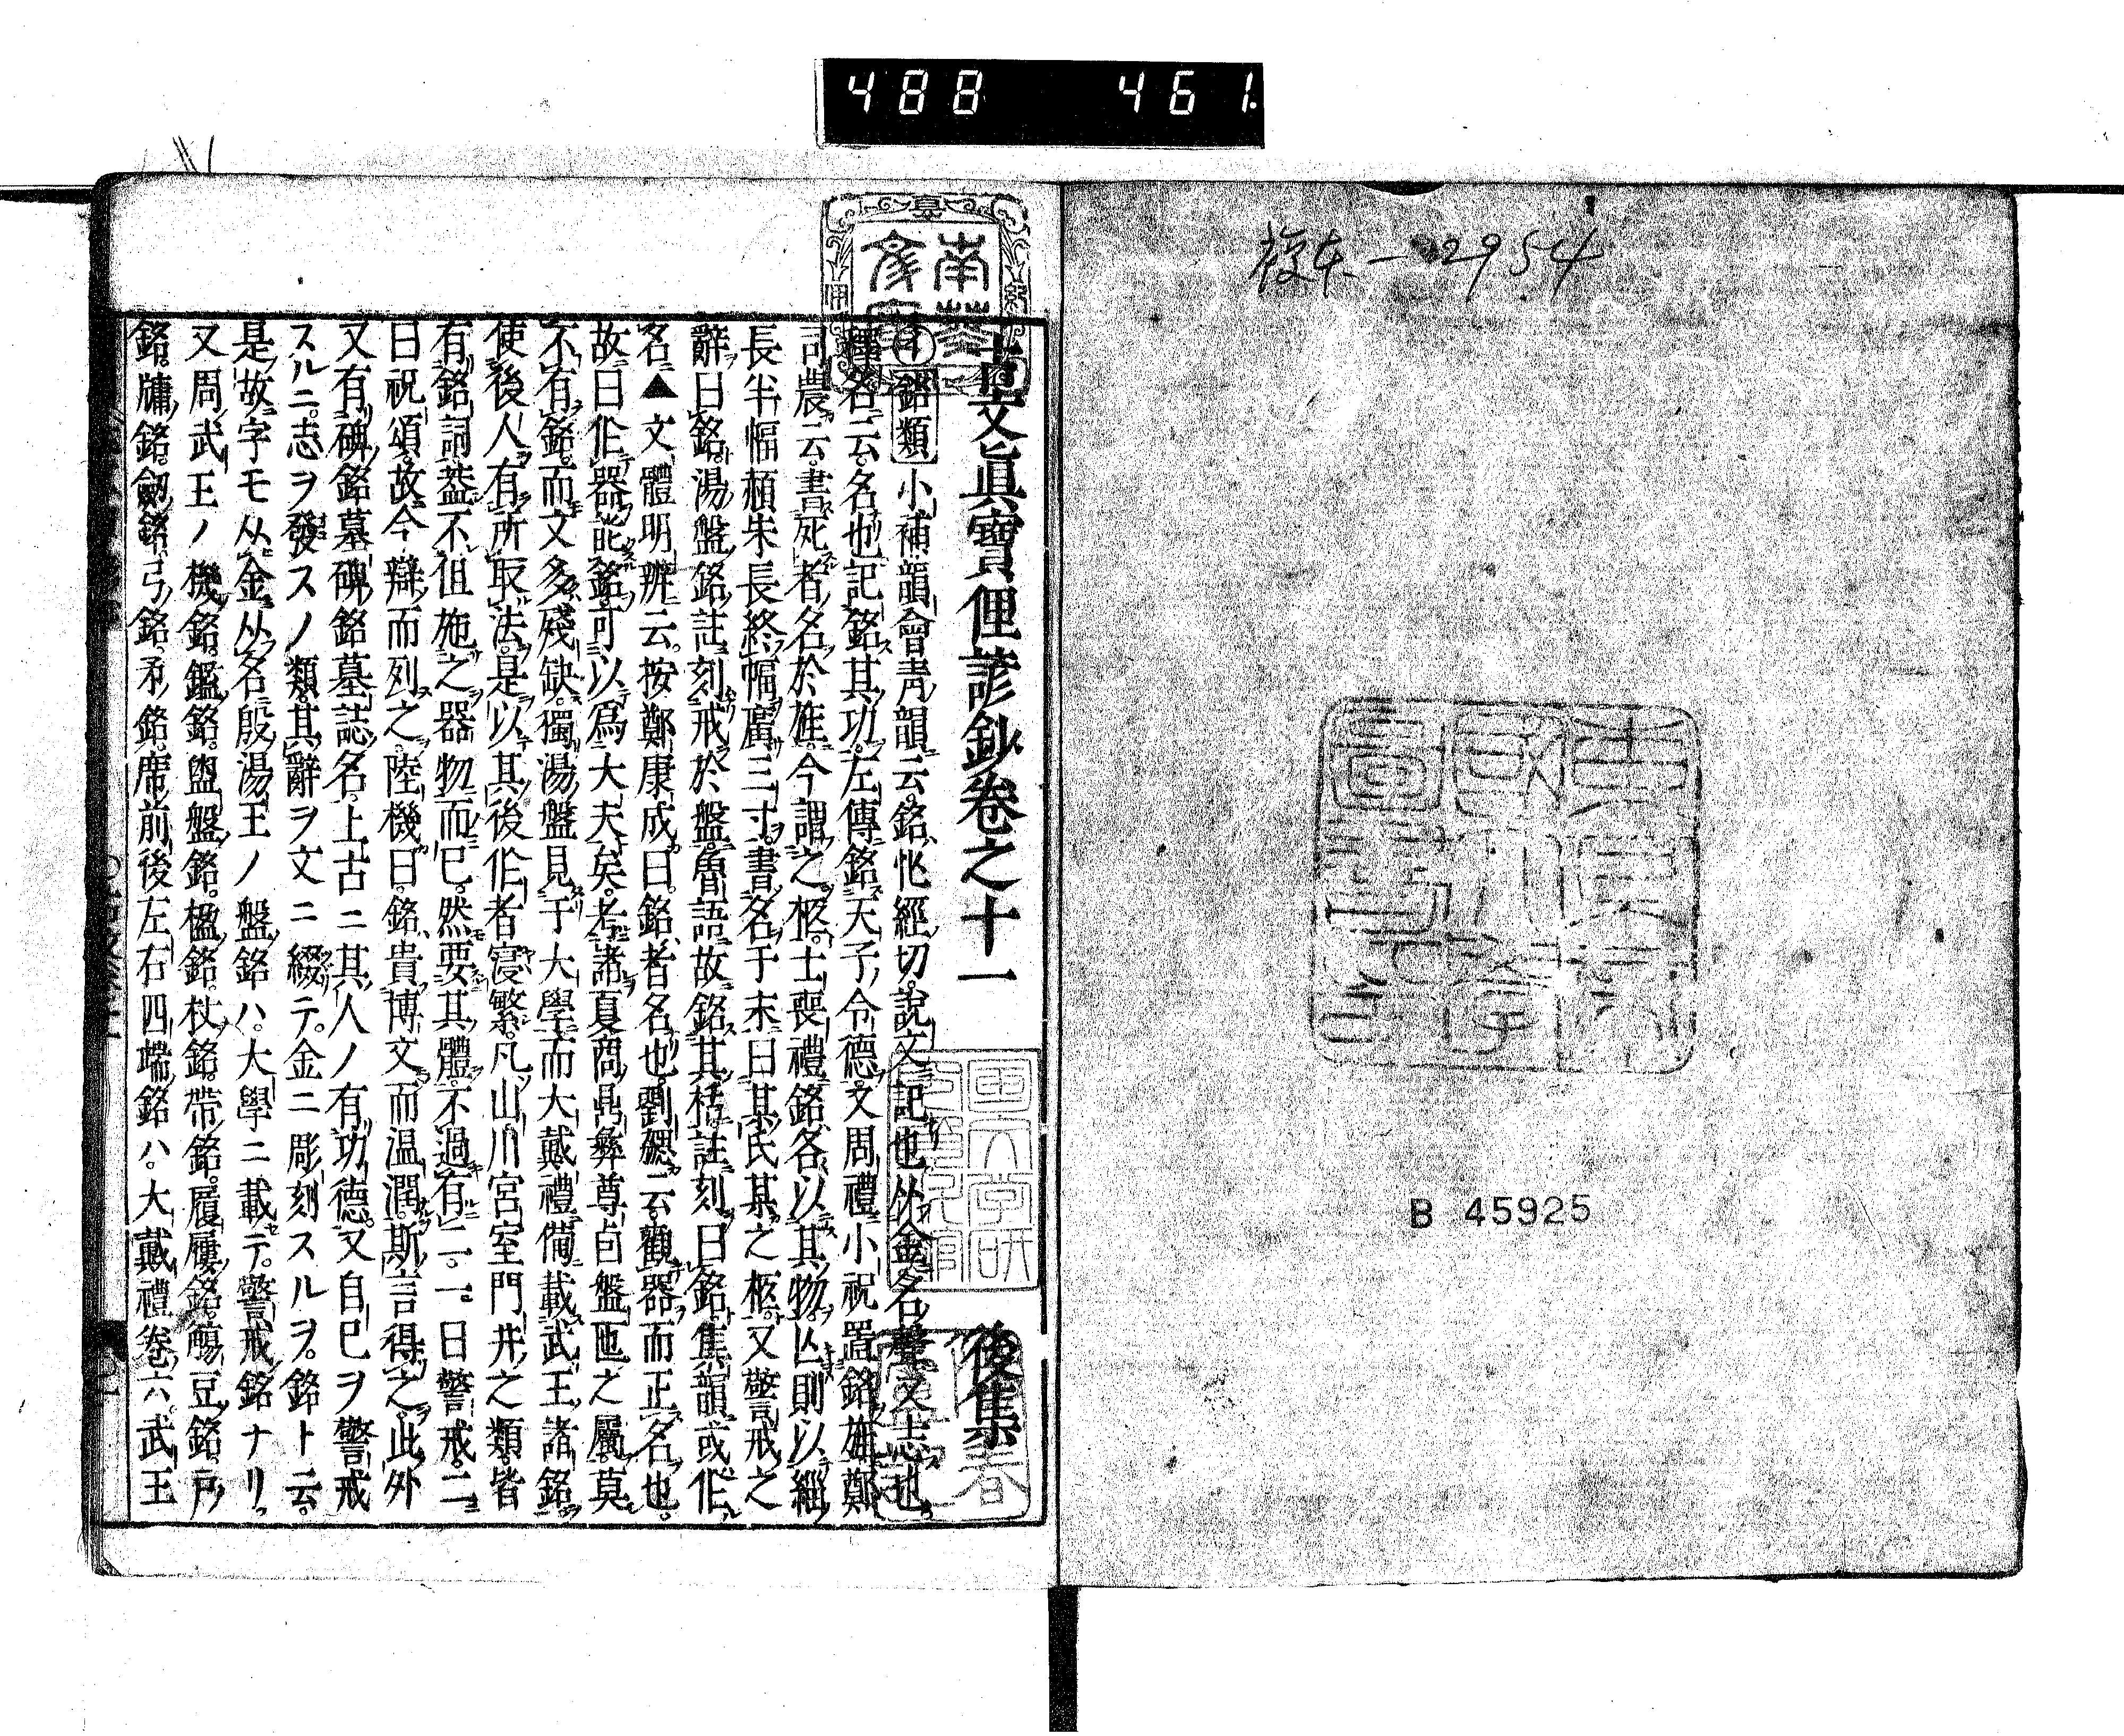 488 461
複本-2954
B 45925
古文眞寶俚諺鈔卷之十一 後集
銘類 小補韻會靑韻云銘忙經切說文記也从金名聲又志也
釋名云名也記銘其功左傳銘天子令德又周禮小祝置銘旌鄭
司農云書死者名於旌今謂之柩士喪禮銘各以其物亾則以緇
長半幅赬朱長終幅廣三寸書名于末曰某氏某之柩又警戒之
辭曰銘湯盤銘註刻戒於盤魯語故銘其栝註刻曰銘集韻或作
名▲文體明辨云按鄭康成曰銘者名也劉勰云觀器而正名也
故曰作器能銘可以爲大夫矣考諸夏商鼎彝尊卣盤匜之屬莫
不有銘而文多殘缺獨湯盤見于大學而大戴禮備載武王諸銘
使後人有所取法是以其後作者寖繁凡山川宮室門井之類皆
有銘詞葢不但施之器物而已然要其體不過有二一曰警戒二
曰祝頌故今辯而列之陸機曰銘貴博文而温潤斯言得之此外
又有碑銘墓碑銘墓誌名上古ニ其人ノ有功德又自己ヲ警戒
スルニ志ヲ發スノ類其辭ヲ文ニ綴テ金ニ彫刻スルヲ銘ト云
是故字モ从金从名殷湯王ノ盤銘ハ大學ニ載テ警戒銘ナリ
又周武王ノ機銘鑑銘盥盤銘楹銘杖銘帶銘履屨銘觴豆銘戶
銘牖銘劔銘弓銘矛銘席前後左右四端銘ハ大戴禮卷六武王